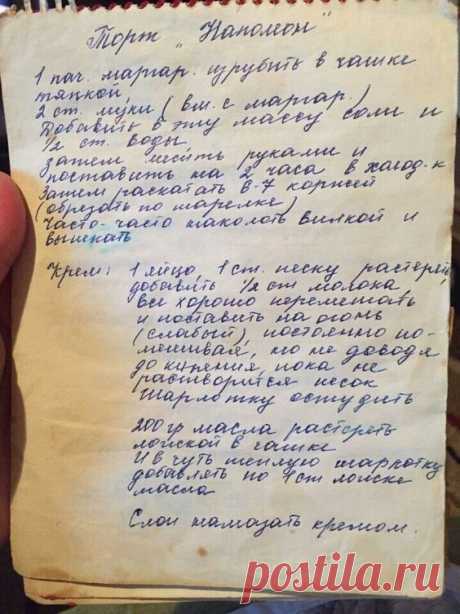 Торт „Наполеон"
1 пач. маргар. изрубить в чашке
тяпкой,
2 ст. муки (вм. с маргар.)
Добавить в эту массу соли и
1/2 ст. воды,
затем месить руками и
поставить на 2 часа в холод-к
Затем раскатать 6-7 коржей
(обрезать по тарелке)
Часто-часто наколоть вилкой и
выпекать
Крем: 1 яйцо, 1 ст. песку растереть,
добавить 1/2 ст молока,
все хорошо перемешать
и поставить на огонь
(слабый), постоянно по-
мешивая, но не доводя
до кипения, пока не
растворится песок
Шарлотку остудить
200 гр масла растереть
ложкой в чашке
И в чуть теплую шарлотку
добавлять по 1 ст ложке
масла
Слои намазать кремом.
posobie.info